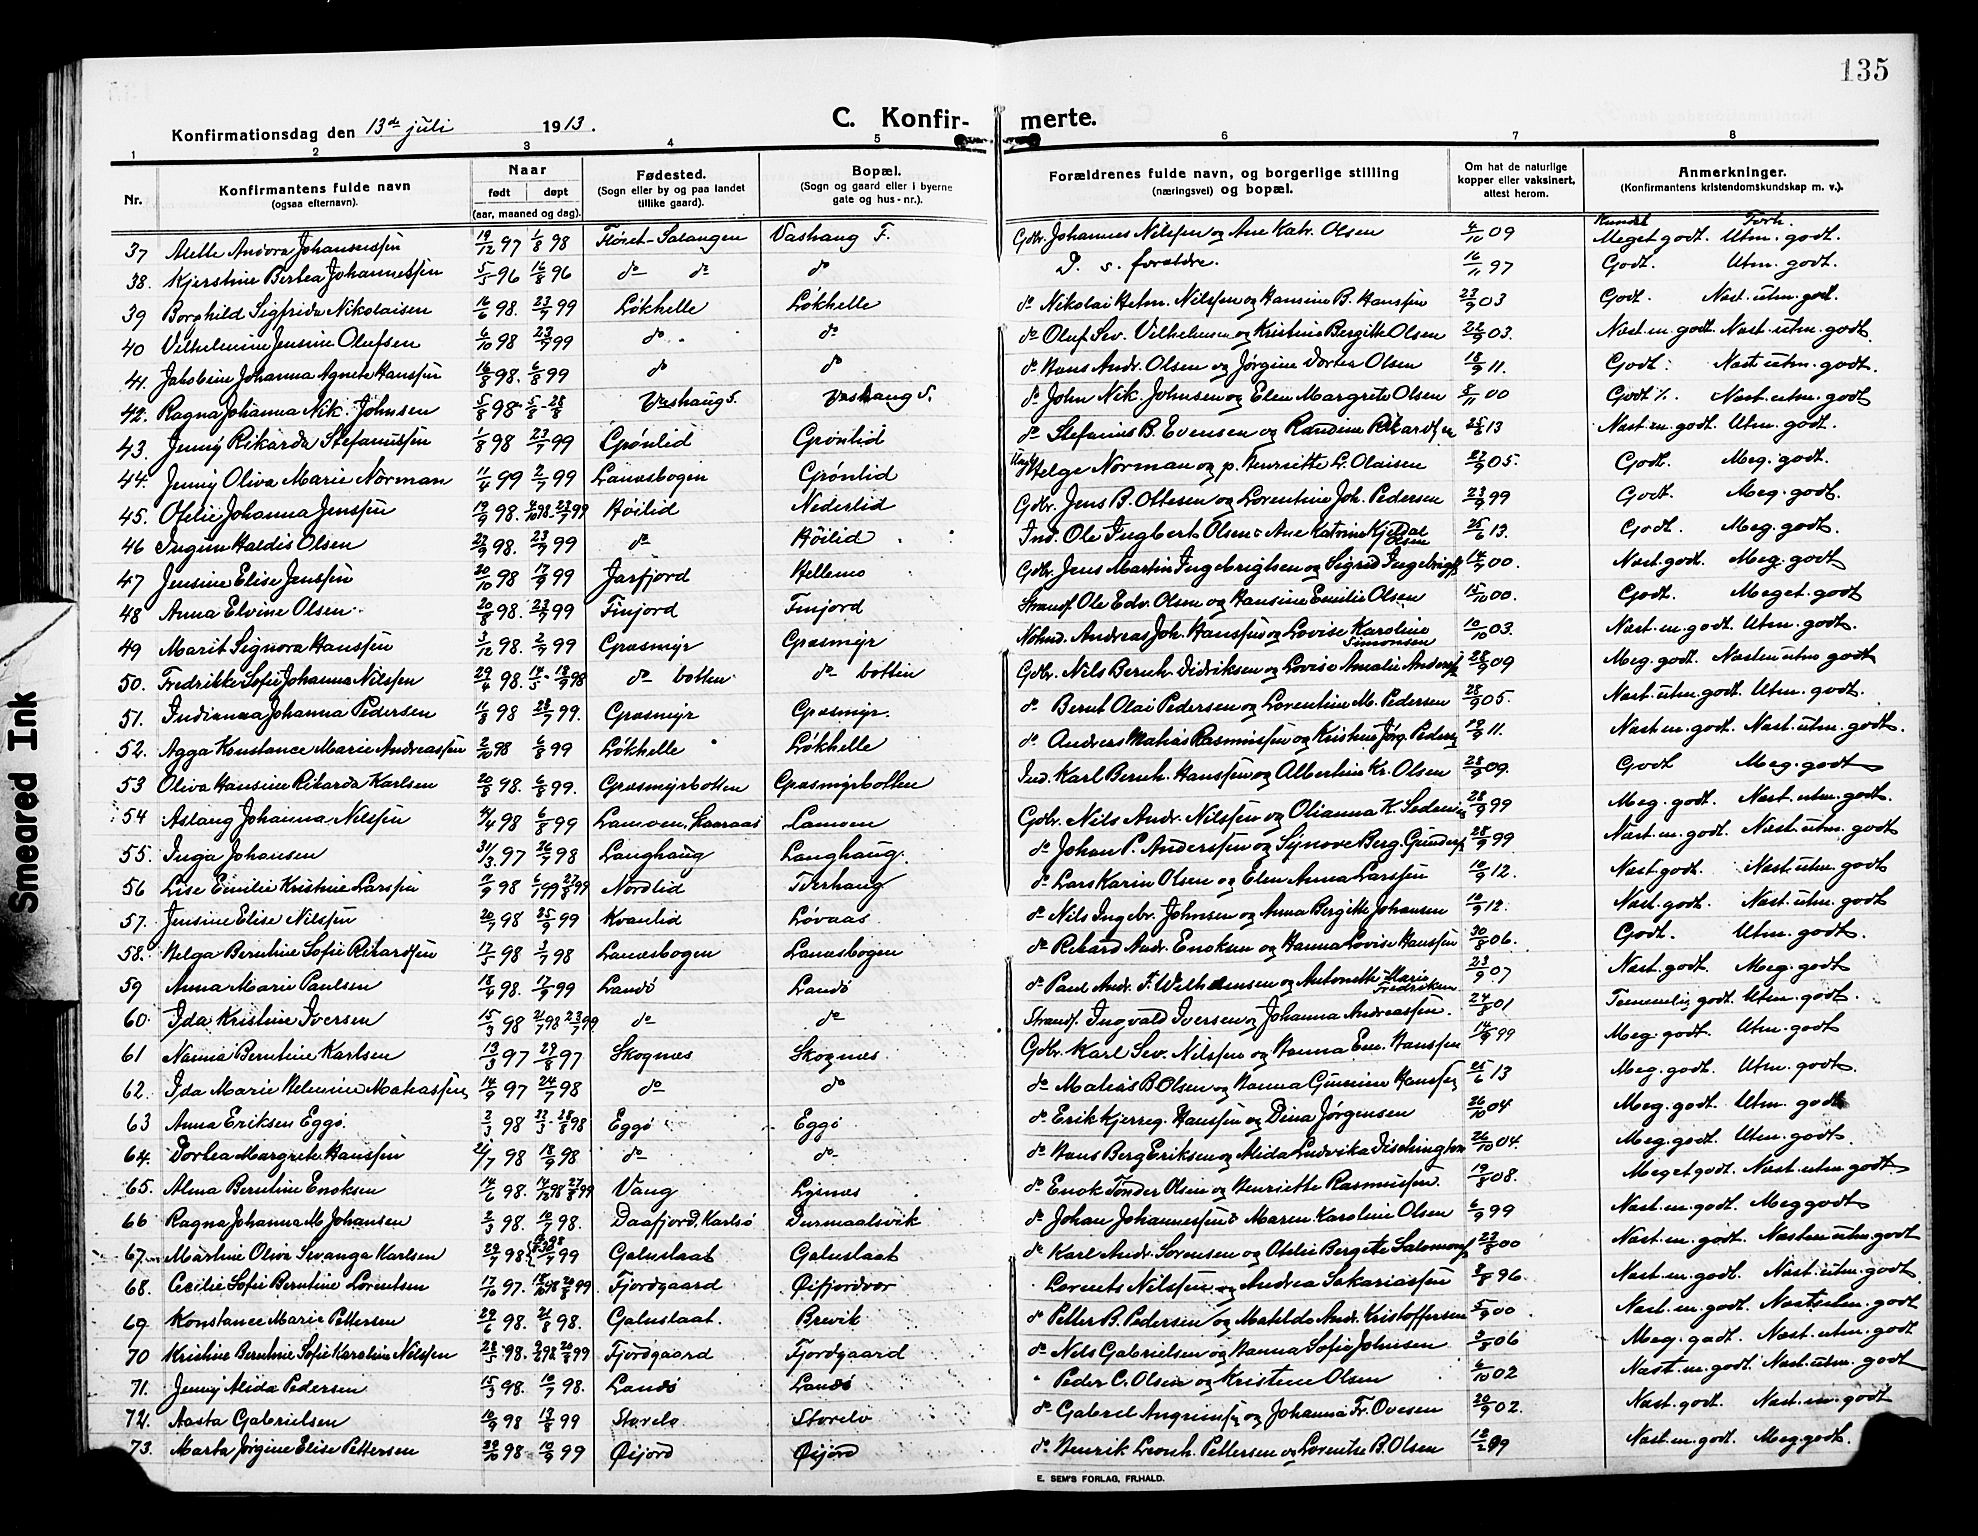 135
C. Konfirmerte.
Konfirmationsdag den 13de juli 1913.
1 2 3 4 5 6 7 8
Nr. Konfirmantens fulde navn (ogsaa efternavn). Naar født døpt (aar, maaned og dag). Fødested. (Sogn eller by og paa landet tillike gaard). Bopæl. (Sogn og gaard eller i byerne gate og hus-nr.). Forældrenes fulde navn, og borgerlige stilling (næringsvei) og bopæl. Om hat de naturlige kopper eller vaksinert, attest herom. Anmerkninger. (Konfirmantens kristendomskundskap m. v.).
Kundsk Forh.
37 Andora Johannessen 19/12 97 1/8 98 Fløiet-Salangen Vashaug F. Gdbr. Johannes Nilssen og Ane Katr. Olsen 4/10 09 Meget godt. Utm. godt.
38. Kjerstine Berlea Johannessen 5/5 96 16/8 96 do do do D. s. forældre. 16/11 97 Godt. Utm. godt.
39 Borghild Sigfrida Nikolaisen 16/6 98. 23/7 99 Løkhelle Løkhelle do Nikolai Helm. Nilssen og Hansine B. Hanssen 23/9 03 Godt. Næst. utm. godt.
40 Vilhelmine Jensine Olufsen 6/10 98 23/7 99 do do do Oluf Sev. Vilhelmsen og Kristine Bergitte Olsen 22/9 03. Næst. m. godt. Næst. utm. godt.
41. Jakobine Johanna Agnete Hanssen 16/8 98. 6/8 99 do do do Hans Andr. Olsen og Jørgine Dortea Olsen 18/9 11. Godt. Næst utm. godt.
42. Ragna Johanna Nik. Johnsen 5/8 98 5/8 - 28/8 Vashaug S. Vashaug S. do John Nik. Johnsen og Elen Margrete Olsen 8/11 00 Godt %. Næst. utm. godt
43. Jenny Rikarda Stefanussen 1/8 98 23/7 99 Grønlid Grønlid do Stefanus B. Evensen og Randine Rikardsen 25/6 13 Næst. m. godt. Utm. godt.
44. Jenny Oliva Marie Norman 11/4 99 2/7 99 Lanæsbogen Grønlid Helge Norman og p. Henriette L. Olaisen 27/9 05. Godt. Meg. godt.
45. Otelie Johanna Jenssen 19/9 98. 4/10 98 - 23/7 99 Høilid Nederlid Gdbr. Jens B. Ottesen og Lorentine Joh. Pedersen 23/9 99 Godt. Meg. godt.
46 Ingine Haldis Olsen 22/9 98. 23/7 99 do Høilid Ind. Ole Ingbert Olsen & Ane Katrine Kjeldal Olsen 25/6 13. Godt. Meg. godt.
47 Jensine Elise Jenssen 20/10 98 17/9 99 Jarfjord Hellemo Gdbr. Jens Martin Ingebrigtsen og Sigrid Ingebrigts 14/7 00. Næst. godt. Meg. godt
48 Anna Elvine Olsen 20/8 98. 23/7 99 Finjord Finjord Strands. Ole Edv. Olsen og Hansine Emilie Olsen 15/10 00. Godt. Meget. godt
49 Marit Signora Hanssen 3/12 98. 2/7 99 Græsmyr Græsmyr Nohmd. Andreas Joh. Hanssen og Lovise Karoline Simonsen 10/10 03. Næst. m. godt. Utm. godt.
50. Fredrikke Sofie Johanna Nilssen 29/4 98. 14/5 - 18/9 98 do botten do botten Gdbr. Nils Bernh. Didriksen og Lovise Amalie Anders 28/9 09 Meg. godt. Næsten utm godt
51. Indianna Johanna Pedersen 11/8 98 28/7 99. Græsmyr Græsmyr. do Bernt Olai Pedersen og Lorentine M. Pedersen 28/9 05. Næst. utm. godt. Utm. godt.
52. Agga Konstance Marie Andreassen 2/10 98 6/8 99 Løkhelle Løkhelle do Andreas Matias Rasmussen og Kristine Jørg. Peders 19/9 11. Næst. m. godt. Næst. utm. godt.
53 Oliva Hansine Rikarda Karlsen 20/8 98. 6/8 99. Græsmyrbotten Græsmyrbotten Ind. Karl Bernh. Hanssen og Albertine Kr. Olsen 28/9 09. Godt Meg. godt
54 Aslaug Johanna Nilssen 4/4 98 6/8 99 Lamoen. Lamoen Gdbr. Nils Andr. Nilssen og Olianna K. 28/9 99 Meg. godt. Næst. utm. godt.
55. Inga Johansen 31/3 97 26/7 98 Langhaug Langhaug. do Johan P. Anderssen og Synove Berg. Gunders 28/9 99 Næst. m. godt. Næst. utm. godt
56 Lise Emilie Kristine Larssen 17/9 98 6/7 99 27/8 99 Nordlid Tverhaug do Lars Karin Olsen og Elen Anna Larssen 10/9 12. Næst. godt. Næst. utm. godt
57. Jensine Elise Nilssen 20/7 98 25/9 99 Kvanlid Løvaas do Nils Ingebr. Johnsen og Anna Bergitte Johansen 10/9 12. Næst. godt. Næst. utm. godt.
58. Helga Berntine Sofie Rikardsen 17/5 98 3/7 98 Lanæsbogen Lanæsbogen do Rikard Andr. Enoksen og Hanna Lovise Hanssen 30/8 06. Godt. Utm. godt.
59 Anna Marie Paulsen 18/4 98. 17/9 99 Landø Landø do Paul Andr. F. Wilhelmsen og Antonette Marie Fredriksen 23/9 07 Næst. godt. Meg. godt.
60. Ida Kristine Iversen 15/3 98 21/7 98 23/7 99 do do Strands. Ingvald Iversen og Johanna Andreassen. 24/8 01 Temmelig godt. Utm. godt.
61 Nanna Berntine Karlsen 13/3 97 29/8 97 Skognæs Skognæs. Gdbr. Karl Sev. Nilssen og Hanna Em. Hanssen 14/9 99 Meg. godt. Utm. godt
62. Ida Marie Helmine Matiassen 14/9 97 24/7 98 do do do Matias B. Olsen og Hanna Gunnine Hanssen 25/6 13 Meg. godt. Utm. godt.
63 Anna Eriksen Eggø. 2/3 98 23/3 - 28/8 98 Eggø Eggø do Erik Kjerreg. Hanssen og Dina Jørgensen 26/10 04 Meg. godt. Utm. godt
64. Dorlea Margrete Hanssen 21/7 98 18/9 98 do do do Hans Berg Eriksen og Alida Ludvika Disthington 26/10 04. Meg. godt. Utm. godt.
65. Alma Berntine Enoksen 14/6 98. 14/10 98 27/8 99 Vang Lysnæs do Enok Tønder Olsen og Henriette Rasmussen. 19/8 08. Meget godt. Næst. utm. godt
66 Ragna Johanna M. Johansen 2/3 98. 10/7 98. Daafjord, Karlsø Durmaalsvik do Johan Johannessen & Maren Karoline Olsen 6/9 99 Næst. m. godt. Meg godt
67. Martine Oliva Sevanga Karlsen 29/7 98 30/7 99 Galnslaat Galnslaat do Karl Andr. Sørensen og Otelie Bergete Salomons 23/8 00 Næst. m. godt. Næsten utm. godt
68. Cecilie Sofie Berntine Lorentsen 17/10 97. 18/10 98 20/8 99 Fjordgaard Øifjordvær Lorents Nilssen og Andrea Sakariassen 9/8 96. Næst. m. godt. Næst. utm. godt
69. Konstance Marie Pettersen 29/6 98. 21/8 98. Galnslaat. Brevik do Petter B. Pedersen og Matilde Andr. Kristoffersen 5/9 00 Næst. m. godt. Næst. utm. godt
70 Kristine Berntine Sofie Karoline Nilssen 28/5 98. 2/6 98 20/8 99 Fjordgaard Fjordgaard do Nils Gabrielsen og Hanna Sofie Johnsen 9/8 06 Meg. godt. Næst. utm. godt
71. Jenny Alida Pedersen 15/3 98. 10/7 98. Landø Landø " Peder C. Olsen og Kristine Olsen 6/10 02 Næst. m. godt. Næst. utm. godt
72. Aasta Gabrielsen 10/9 98 13/8 99 Storelv Storelv do Gabriel Angrimsen og Johanna Fr. Ovesen 20/9 02. Næst. godt. Næst. m. godt
73. Marta Jørgine Elise Pettersen 29/10 98. 10/9 99 Øijord Øijord do Henrik Leonh. Pettersen og Lorentse B. Olsen 18/2 99 Næst. m. godt. Meg. godt.
E. SEM'S FORLAG, FR.HALD.
Smeared Ink